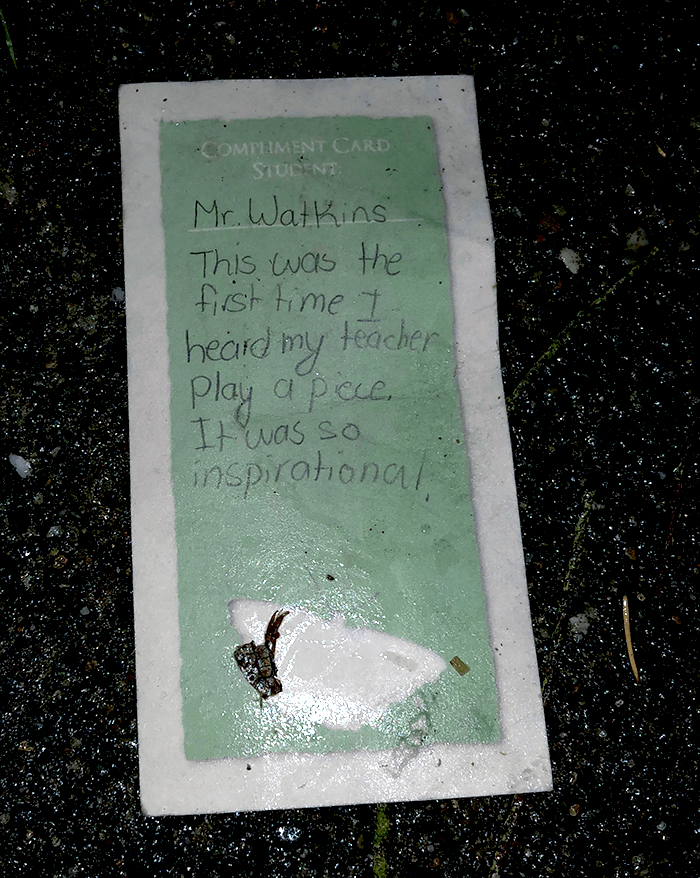 COMPLIMENT CARD
STUDENT:
Mr. Watkins
This was the
first time I
heard my teacher
play a piece.
It was so
inspirational.